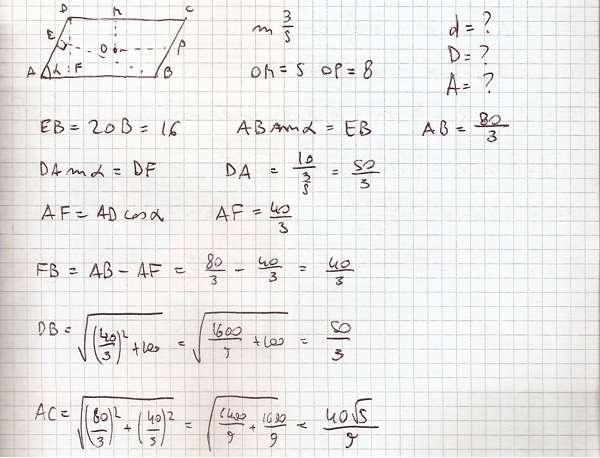 D M C
m 3/5
d = ?
E O P
OM = 5 OP = 8
D = ?
A α F B
A = ?
EB = 2OB = 16 AB sin α = EB AB = 80/3
DA sin α = DF DA = 10/(3/5) = 50/3
AF = AD cos α AF = 40/3
FB = AB - AF = 80/3 - 40/3 = 40/3
DB = √((40/3)² + 100) = √(1600/9 + 100) = 50/3
AC = √((80/3)² + (40/3)²) = √(6400/9 + 1600/9) = 40√5/9